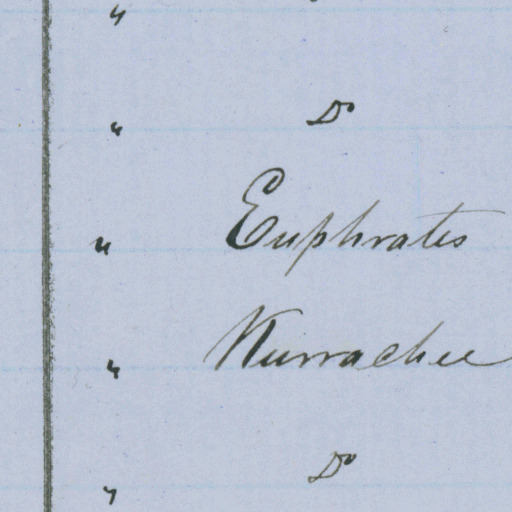 "
" Do
" Euphrates
" Kurrachee
" Do